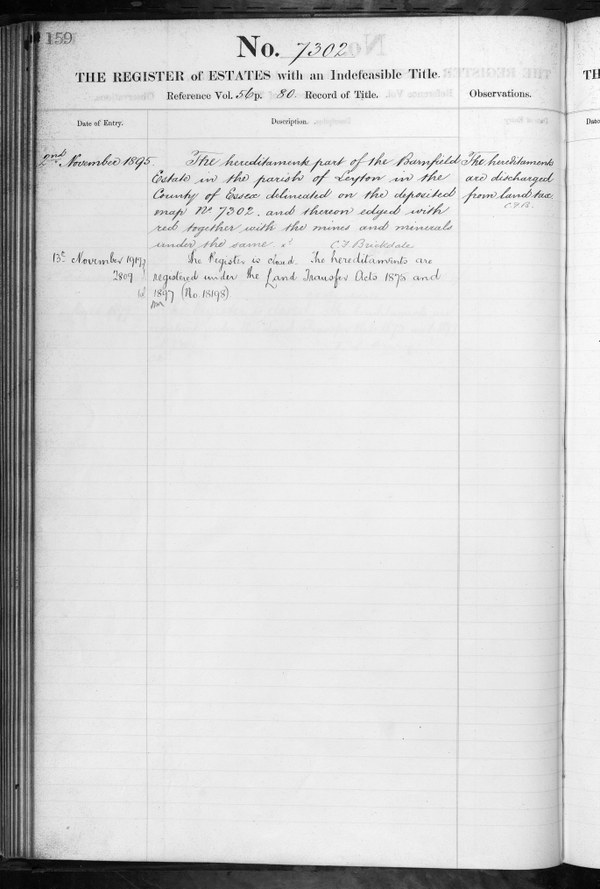 159
No. 7302
THE REGISTER of ESTATES with an Indefeasible Title.
Reference Vol. 56 p. 80. Record of Title.
Observations.
Date of Entry.
Description.
2nd November 1895
The hereditaments part of the Bamfield
Estate in the parish of Leyton in the
County of Essex delineated on the deposited
map No 7302. and thereon edged with
red together with the mines and minerals
under the same.
C F Brickdale
The hereditaments
are discharged
from land tax.
C.F.B.
13th November 1901
2809
The Register is closed. The hereditaments are
registered under the Land Transfer Acts 1875 and
1897 (No. 18198)
TH